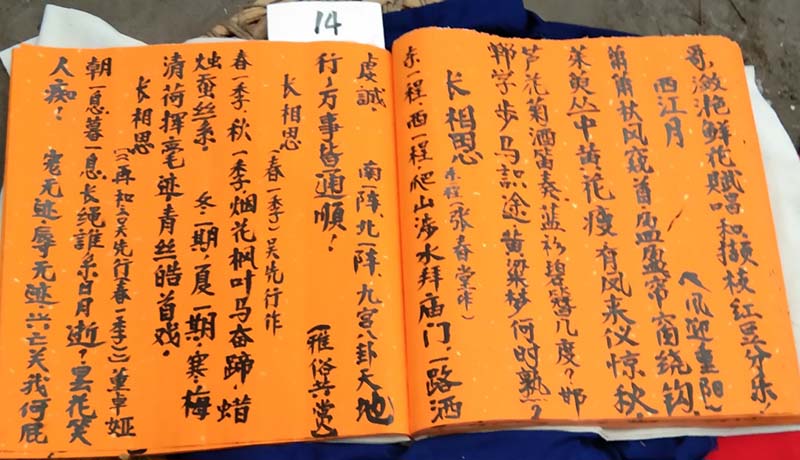 14
哥,潋滟鲜花赋唱和撷枝红豆分乐!
西江月
(风迎重阳)
萧萧秋风窥首,盈盈帘窗绕钩,
茱萸丛中黄花瘦,有风来仪惊秋。
芦花菊酒笛奏,蓝衫碧簪几度?邯
郸学步马识途,黄粱梦何时熟?
长相思
东程(张春堂作)
东一程,西一程,爬山涉水拜庙门,一路洒
虔诚。 南一阵,北一阵,九宫八卦天地
行,万事皆通顺! (雅俗共赏)
长相思
(春一季)吴先行作
春一季,秋一季,烟花枫叶马奋蹄,蜡
烛蚕丝系。 冬一期,夏一期,寒梅
清荷挥毫迹,青丝皓首戏。
长相思
(再和吴先行春一季)董卓娅
朝一息,暮一息,长绳谁系日月逝?昙花笑
人痴! 宠无迹,辱无迹,兴亡关我何屁